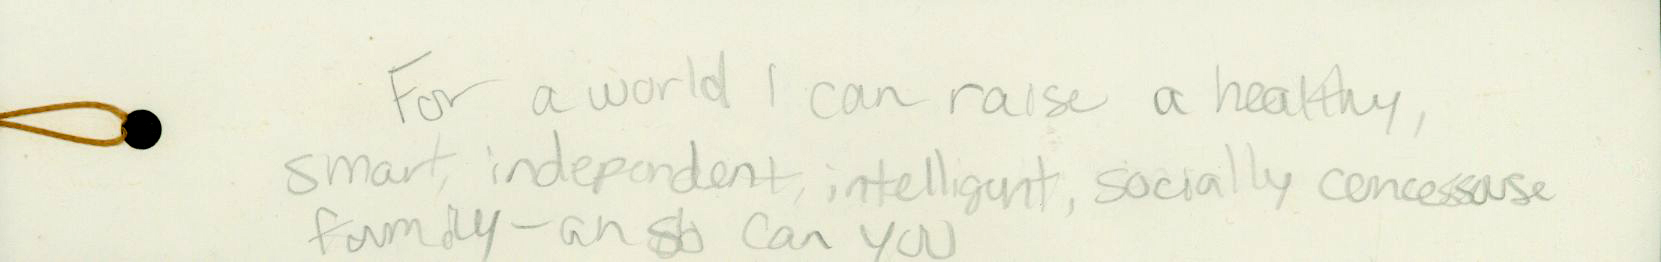 For a world I can raise a healthy,
smart, independent, intelligunt, socially concessouse
family - an so can you